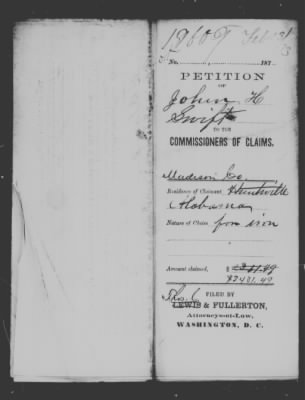 18609 Feb
No. , 187
PETITION
OF
John H
Swift
TO THE
COMMISSIONERS OF CLAIMS.
Madison Co.
Residence of Claimant Huntsville
Alabama
Nature of Claim
Amount claimed, $
$2481.49
FILED BY
Thos. C
LEWIS & FULLERTON,
Attorneys-at-Law,
WASHINGTON, D. C.